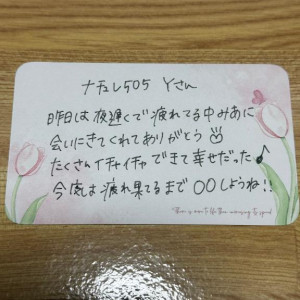 ナチュレ505 Yさん
昨日は夜遅くで疲れてる中みあに
会いにきてくれてありがとう
たくさんイチャイチャできて幸せだった♪
今度は疲れ果てるまで〇〇しようね!!